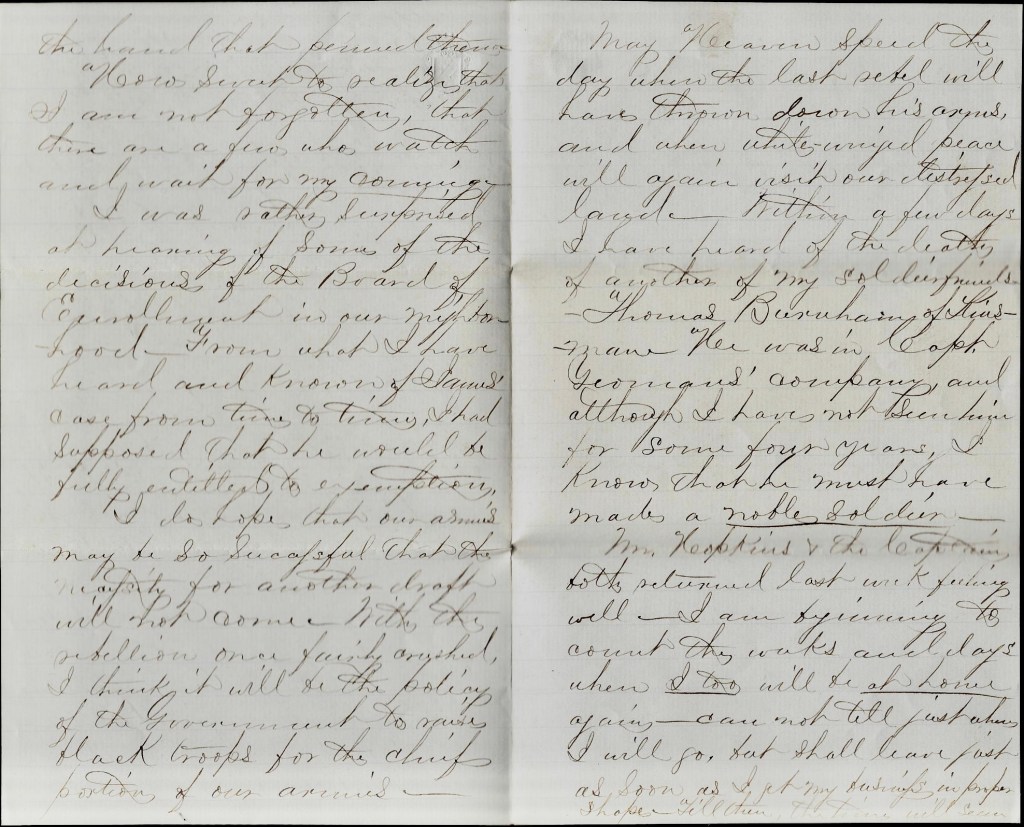 the hand that penned them
How sweet to realize that
I am not forgotten, that
there are a few who watch
and wait for my coming
I was rather surprised
at hearing of some of the
decisions of the Board of
Enrollment in our neighbor-
-hood - From what I have
heard and known of James'
case from time to time, I had
supposed that he would be
fully entitled to exemption.
I do hope that our armies
may be so successful that the
necessity for another draft
will not come - With the
rebellion once fairly crushed,
I think it will be the policy
of the Government to raise
black troops for the chief
portion of our armies -
May Heaven speed the
day when the last rebel will
have thrown down his arms,
and when white-winged peace
will again visit our distressed
land - Within a few days
I have heard of the death
of another of my soldier friends -
- Thomas Burnham of Kins-
-man He was in Capt
Yeomans' company, and
although I have not seen him
for some four years, I
know that he must have
made a noble soldier -
Mr. Hopkins & the Captain
both returned last week feeling
well - I am beginning to
count the weeks and days
when I too will be at home
again - can not tell just when
I will go, but shall leave just
as soon as I get my business in proper
shape - Till then, the time will seem